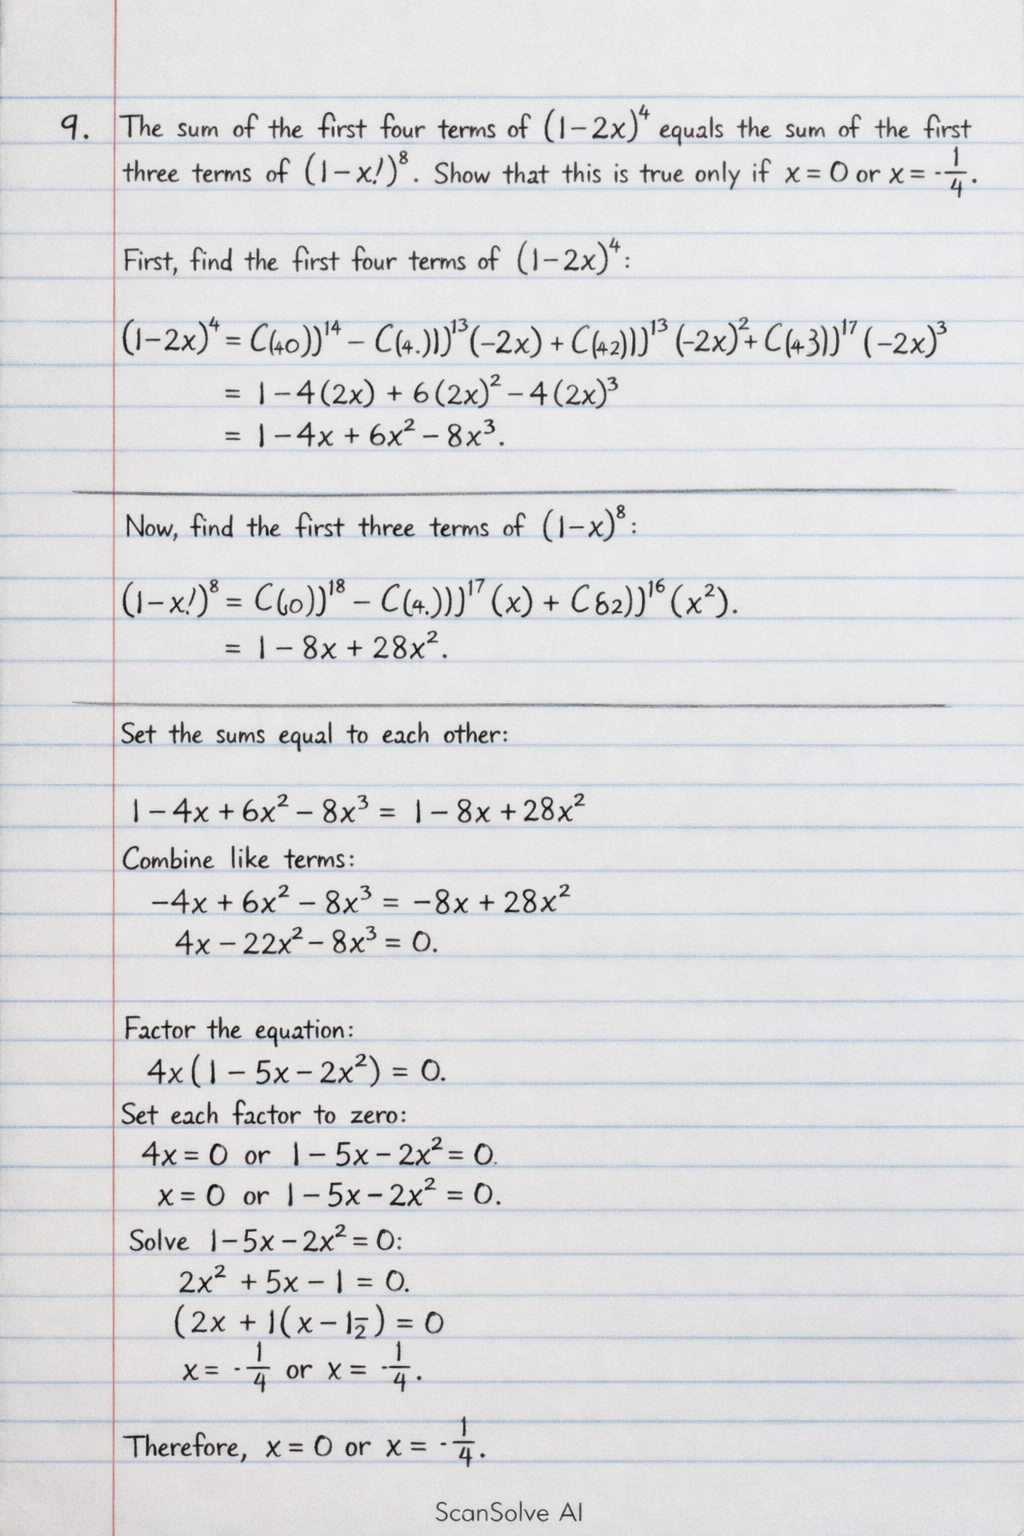 9. The sum of the first four terms of (1-2x)⁴ equals the sum of the first
three terms of (1-x!)⁸. Show that this is true only if x = 0 or x = -1/4.
First, find the first four terms of (1-2x)⁴:
(1-2x)⁴ = C(40))¹⁴ - C(4.)))¹³(-2x) + C(42)))¹³ (-2x)² + C(43))¹⁷ (-2x)³
= 1 - 4(2x) + 6(2x)² - 4(2x)³
= 1 - 4x + 6x² - 8x³.
Now, find the first three terms of (1-x)⁸:
(1-x!)⁸ = C(60))¹⁸ - C(4.)))¹⁷ (x) + C62))¹⁶ (x²).
= 1 - 8x + 28x².
Set the sums equal to each other:
1 - 4x + 6x² - 8x³ = 1 - 8x + 28x²
Combine like terms:
-4x + 6x² - 8x³ = -8x + 28x²
4x - 22x² - 8x³ = 0.
Factor the equation:
4x(1 - 5x - 2x²) = 0.
Set each factor to zero:
4x = 0 or 1 - 5x - 2x² = 0.
x = 0 or 1 - 5x - 2x² = 0.
Solve 1-5x-2x² = 0:
2x² + 5x - 1 = 0.
(2x + 1(x - 1½) = 0
x = -1/4 or x = -1/4.
Therefore, x = 0 or x = -1/4.
ScanSolve AI